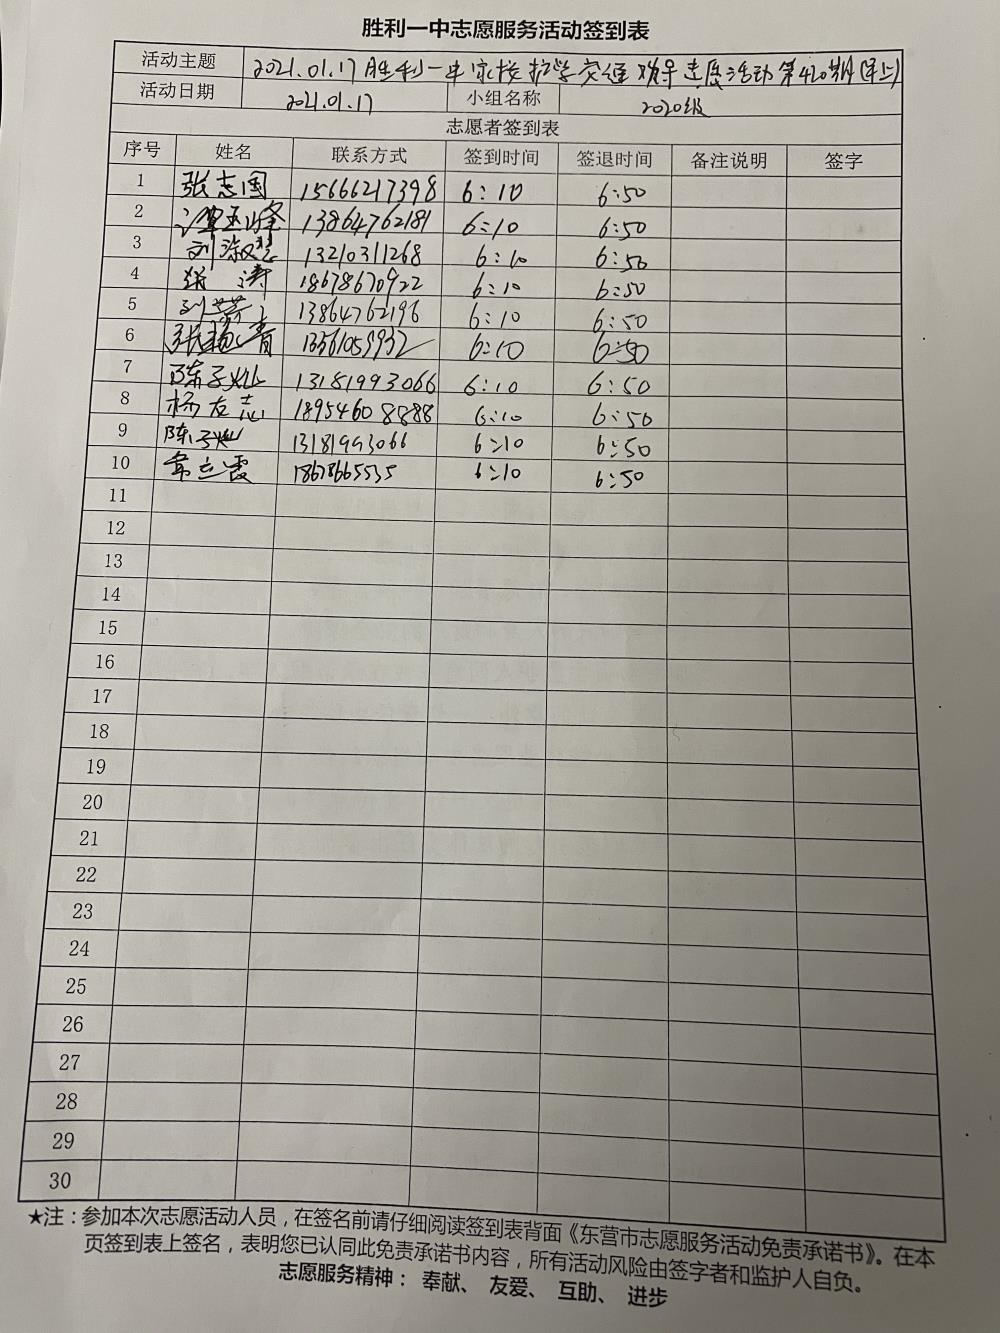 胜利一中志愿服务活动签到表
活动主题 2021.01.17胜利一中家校护学交通劝导志愿活动第420期(早上)
活动日期 2021.01.17 小组名称 2020级
志愿者签到表
序号 姓名 联系方式 签到时间 签退时间 备注说明 签字
1 张志国 15666217398 6:10 6:50
2 13864762181 6:10 6:50
3 刘淑慧 13210311268 6:10 6:50
4 张涛 18678670922 6:10 6:50
5 刘芳 13864762196 6:10 6:50
6 张杨青 13561059932 6:10 6:50
7 陈子灿 13181993066 6:10 6:50
8 杨友志 18954608888 6:10 6:50
9 陈子灿 13181993066 6:10 6:50
10 18678665535 6:10 6:50
11
12
13
14
15
16
17
18
19
20
21
22
23
24
25
26
27
28
29
30
★注：参加本次志愿活动人员，在签名前请仔细阅读签到表背面《东营市志愿服务活动免责承诺书》。在本
页签到表上签名，表明您已认同此免责承诺书内容，所有活动风险由签字者和监护人自负。
志愿服务精神：奉献、友爱、互助、进步